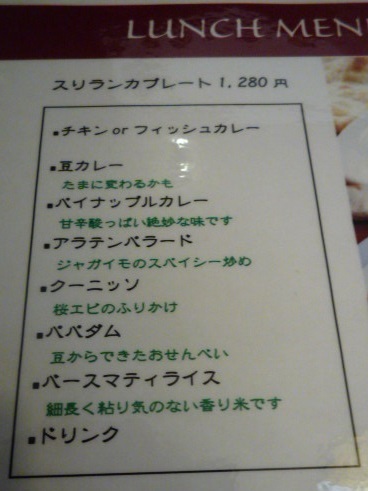 LUNCH MEN
スリランカプレート 1,280 円
▪チキン or フィッシュカレー
▪豆カレー
たまに変わるかも
▪パイナップルカレー
甘辛酸っぱい絶妙な味です
▪アラテンパラード
ジャガイモのスパイシー炒め
▪クーニッソ
桜エビのふりかけ
▪パパダム
豆からできたおせんべい
▪バースマティライス
細長く粘り気のない香り米です
▪ドリンク